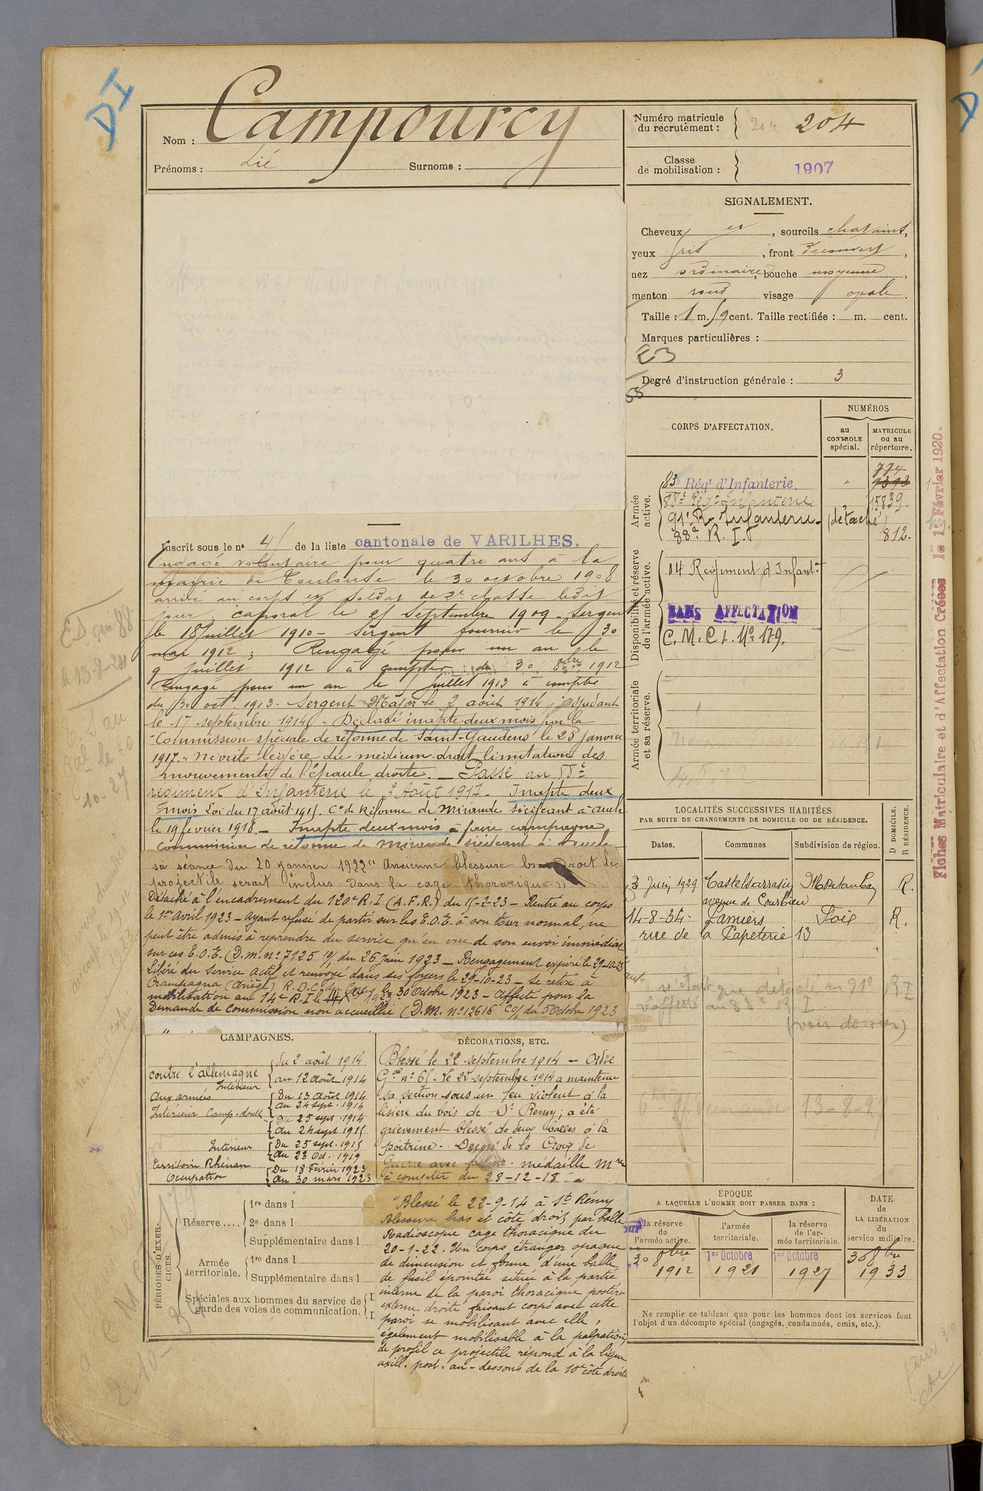 DI
Nom : Campourcy
Prénoms : Lié Surnoms :
Numéro matricule
du recrutement : 204 204
Classe
de mobilisation : 1907
SIGNALEMENT.
Cheveux et , sourcils chatains,
yeux gris , front découvert ,
nez ordinaire, bouche moyenne ,
menton rond visage ovale.
Taille : 1 m. cent. Taille rectifiée : m. cent.
Marques particulières :
Degré d'instruction générale : 3
CORPS D'AFFECTATION.
NUMÉROS
au
CONTROLE
spécial.
MATRICULE
ou au
répertoire.
Armée
active.
83 Régt d'Infanterie
88e Régt Infanterie 15839.
91e R. Infanterie (détaché)
88e R. I. 812.
Disponibilité et réserve
de l'armée active.
14 Régiment d'Infantie
SANS AFFECTATION
C. M. C L. No 179.
Armée territoriale
et sa réserve.
Inscrit sous le no 41 de la liste cantonale de VARILHES.
Engagé volontaire pour quatre ans à la
mairie de Toulouse le 30 octobre 1908
arrivé au corps et soldat de 2e classe ledit
jour; caporal le 25 septembre 1909 - Sergent
le 18 juillet 1910 - Sergent fourrier le 30
mai 1912; Rengagé pour un an le
9 juillet 1912 à compter du 30 8bre 1912
Rengagé pour un an le juillet 1913 à compter
du 30 oct. 1913. Sergent Major le 2 août 1914, Adjudant
le 17 septembre 1914. - Déclaré inapte deux mois par la
Commission spéciale de réforme de Saint-Gaudens le 25 janvier
1917. "névrite légère du médium droit limitation des
mouvements de l'épaule droite. - Passé au 88e
régiment d'Infanterie le 2 Août 1917. Inapte deux
mois Loi du 17 août 1915. Con de Réforme de Mirande siégeant à Auch
le 19 février 1918. - Inapte deux mois à faire campagne
Commission de réforme de Mirande siégeant à
sa séance du 20 janvier 1922 "Ancienne blessure bras droit le
projectile serait inclus dans la cage thoracique"
Détaché à l'encadrement du 120e R.I (A.F.R.) du 15-2-23 - Rentré au corps
le 1er Avril 1923 - ayant refusé de partir sur les T.O.E. à son tour normal, ne
peut être admis à reprendre du service qu'en vue de son envoi immédiat
sur ces T.O.E. (D.m. no 7125 du 26 Juin 1923 - Rengagement expiré le 29-10-23
Libéré du Service actif et renvoyé dans ses foyers le 29-10-23 - Se retire à
Crampagna (Ariège) R.D.C. le 30 Octobre 1923 - Affecté pour la
mobilisation au 14e R.I
Demande de Commission non accueillie (D.M. no 12616 du 5 Octobre 1923
LOCALITÉS SUCCESSIVES HABITÉES
PAR SUITE DE CHANGEMENTS DE DOMICILE OU DE RÉSIDENCE.
Dates. Communes Subdivision de région. D DOMICILE. R RÉSIDENCE.
3 Juin 1929 Castelsarrasin Montauban R.
avenue de Courbieu
14-8-34 - Pamiers Foix R.
rue de la Papeterie 13
n'était que détaché au 91e RI
réaffecté au 88e R I
(voir dossier)
Fiches Matriculaire et d'Affectation Créées le 1er Février 1920.
CAMPAGNES.
contre l'allemagne
Intérieur du 2 août 1914
au 12 août 1914
Aux armées du 13 août 1914
au 24 sept. 1914
Intérieur Camp. double du 25 sept. 1914
au 24 sept. 1915
Intérieur du 25 sept. 1915
au 23 Oct. 1919
Territoire Rhénan
Occupation
Du 18 Février 1923
au 30 mars 1923
DÉCORATIONS, ETC.
Blessé le 22 septembre 1914 - Ordre
Gal no 65. Le 22 septembre 1914 a maintenu
sa section sous un feu violent à la
lisière du bois de St Remy; a été
grièvement blessé de deux balles à la
poitrine. Décoré de la Croix de
Guerre avec palme. médaille Mre
à compter du 28-12-18
"Blessé le 22-9-14 à St Rémy
Blessure bras et côté droit par balle
Radioscopie cage thoracique du
20-1-22. Un corps étranger opaque
de dimension et forme d'une balle
de fusil épointée située à la partie
interne de la paroi thoracique postéro
externe droite faisant corps avec cette
paroi se mobilisant avec elle,
également mobilisable à la palpation,
de profil ce projectile répond à la ligne
axill. post. au-dessous de la 10e côte droite
PÉRIODES D'EXERCICES.
Réserve.....
1re dans l
2e dans l
Supplémentaire dans l
Armée
territoriale.
1re dans l
Supplémentaire dans l
Spéciales aux hommes du service de
garde des voies de communication.
ÉPOQUE
A LAQUELLE L'HOMME DOIT PASSER DANS :
la réserve
de
l'armée active.
l'armée
territoriale.
la réserve
de l'ar-
mée territoriale.
DATE
de
LA LIBÉRATION
du
service militaire.
30 8bre
1912
1er Octobre
1921
1er Octobre
1927
30 8bre
1933
Ne remplir ce tableau que pour les hommes dont les services font
l'objet d'un décompte spécial (engagés, condamnés, omis, etc.).